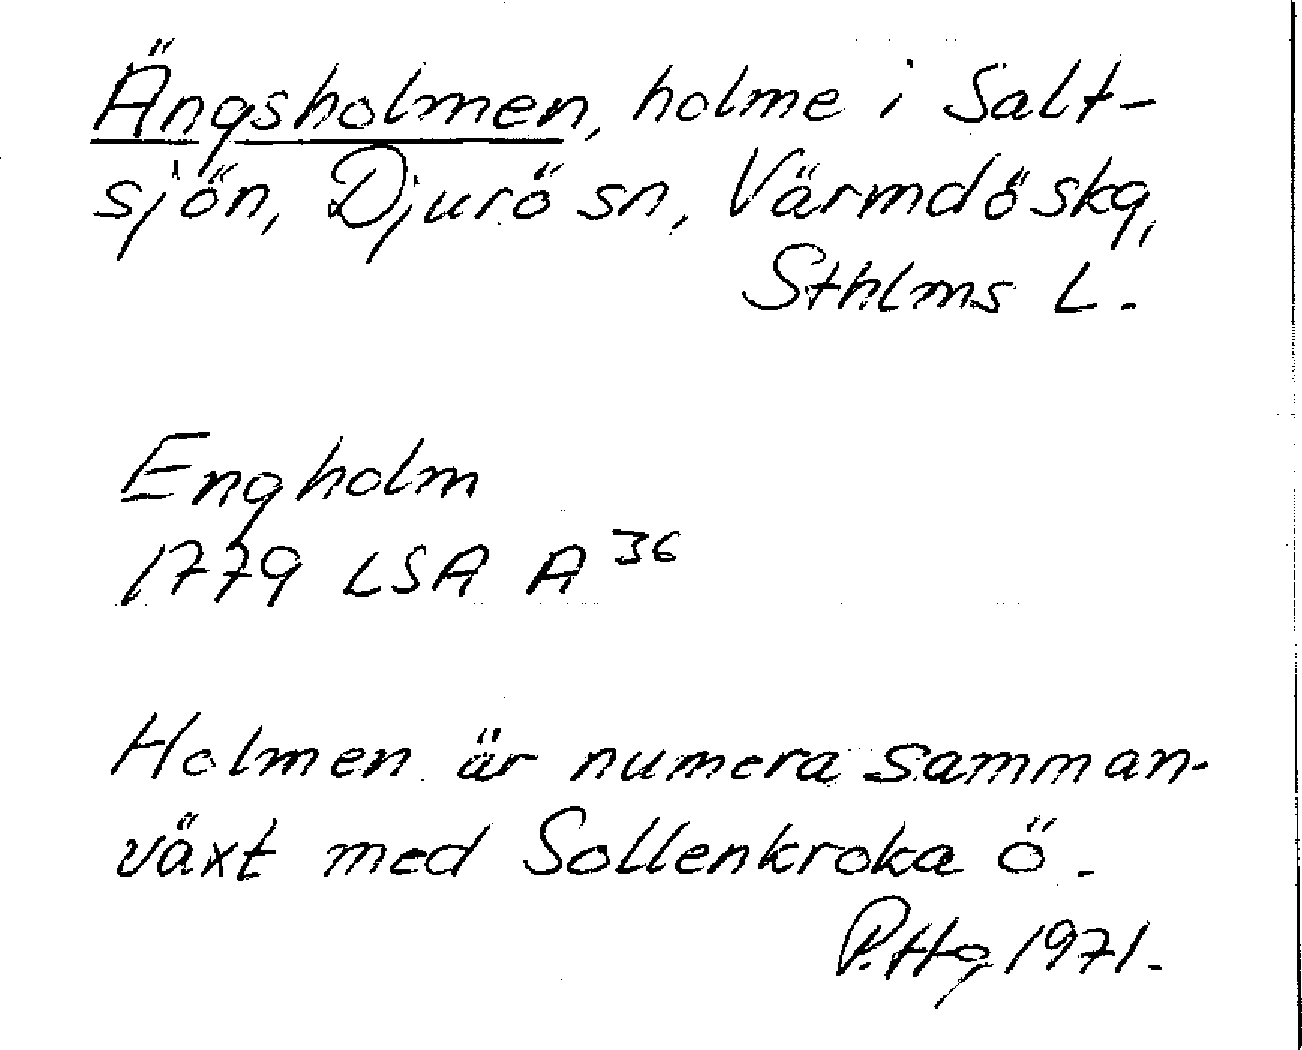 Ängsholmen, holme i Salt-
sjön, Djurö sn, Värmdö skg,
Sthlms L.
Engholm
1779 LSA A 36
Holmen är numera samman-
växt med Sollenkroka ö.
P.Hg 1971.